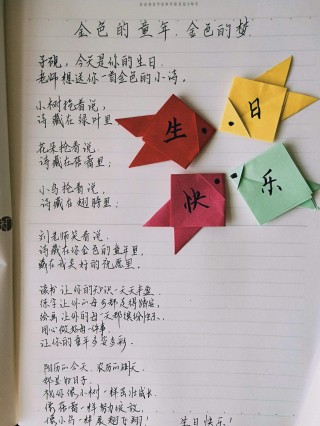 金色的童年，金色的梦
子砚，今天是你的生日.
老师想送你一首金色的小诗。
小树抢着说，
诗藏在绿叶里；
花朵抢着说
诗藏在花蕾里；
小鸟抢着说，
诗藏在翅膀里；
刘老师笑着说，
诗藏在你金色的童年里，
藏在我美好的祝愿里。
读书让你的知识一天天丰盈
练字让你的每
绘画让你的每一天都缤纷快乐.
用心做好每一件事.
让你的童年多姿多彩.
阴历的今天，农历的明天
都是好日子.
祝你像小树一样茁壮成长
像花蕾一样努力绽放，
像小鸟一样展翅飞翔！
生日快乐！
生
日
快
乐